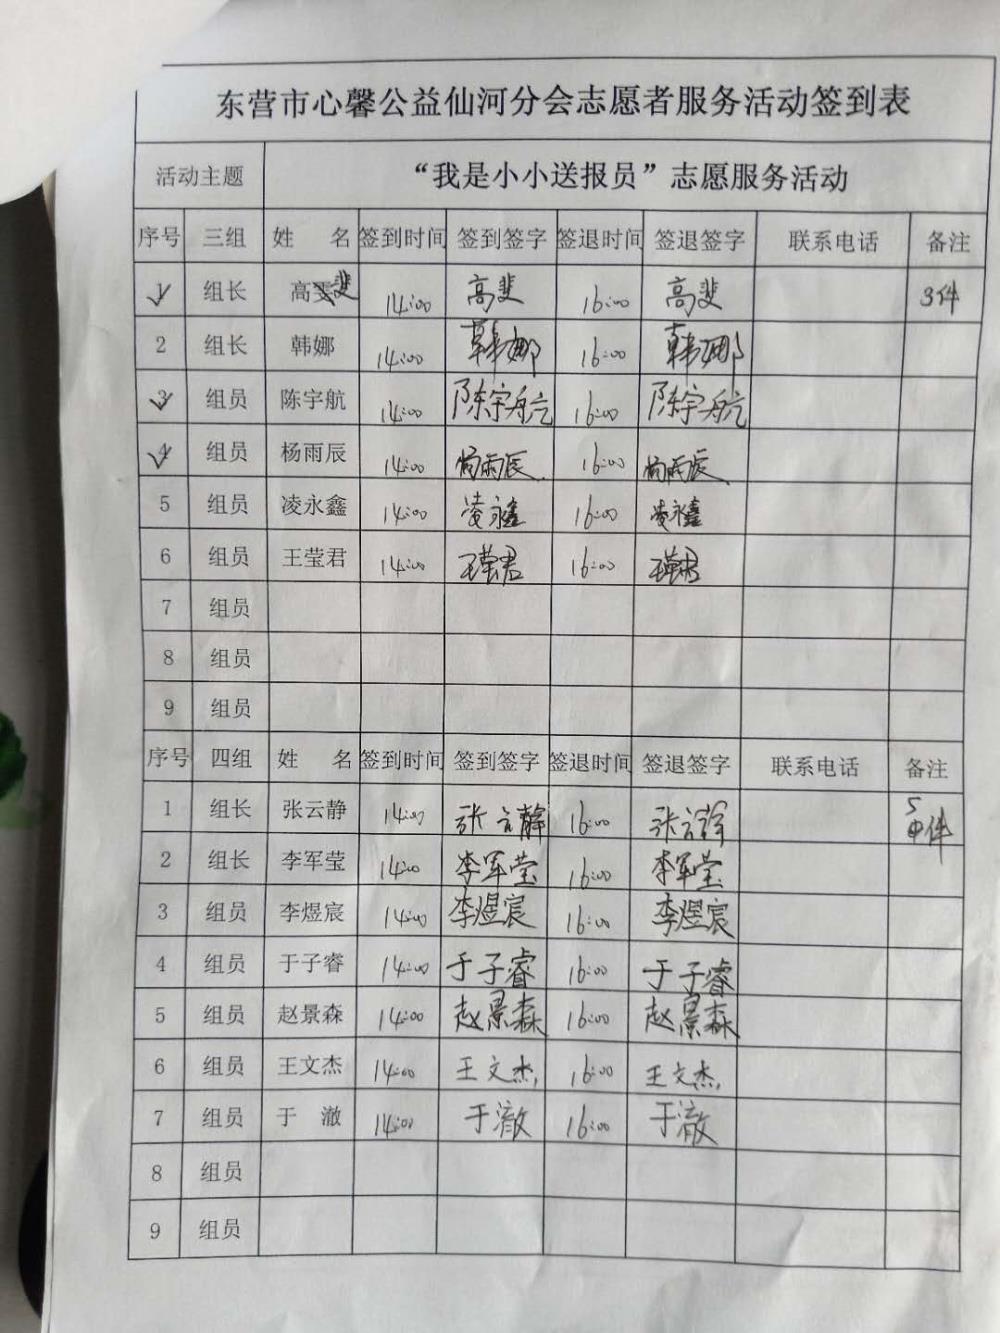 东营市心馨公益仙河分会志愿者服务活动签到表
活动主题 “我是小小送报员”志愿服务活动
序号 三组 姓 名 签到时间 签到签字 签退时间 签退签字 联系电话 备注
1 组长 高斐 14:00 高斐 16:00 高斐 3件
2 组长 韩娜 14:00 韩娜 16:00 韩娜
3 组员 陈宇航 14:00 陈宇航 16:00 陈宇航
4 组员 杨雨辰 14:00 杨雨辰 16:00 杨雨辰
5 组员 凌永鑫 14:00 凌永鑫 16:00 凌永鑫
6 组员 王莹君 14:00 王莹君 16:00 王莹君
7 组员
8 组员
9 组员
序号 四组 姓 名 签到时间 签到签字 签退时间 签退签字 联系电话 备注
1 组长 张云静 14:00 张云静 16:00 张云静 5件
2 组长 李军莹 14:00 李军莹 16:00 李军莹
3 组员 李煜宸 14:00 李煜宸 16:00 李煜宸
4 组员 于子睿 14:00 于子睿 16:00 于子睿
5 组员 赵景森 14:00 赵景森 16:00 赵景森
6 组员 王文杰 14:00 王文杰 16:00 王文杰
7 组员 于 澈 14:00 于澈 16:00 于澈
8 组员
9 组员